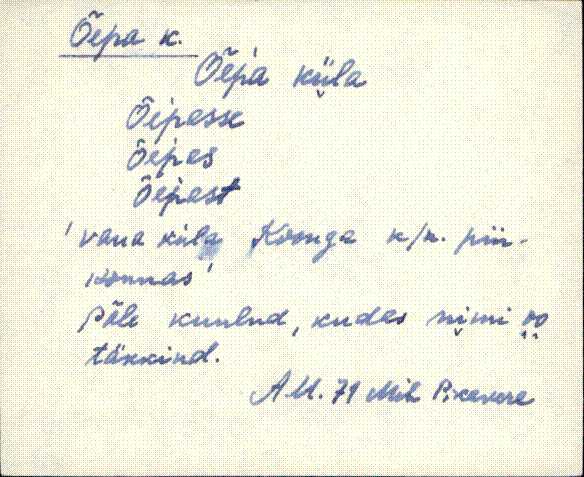 Õepa k.
Õepa küla
Õepasse
Õepas
Õepast
'vana küla Koonga k/n. piir-
konnas'
Põle kuulnd, kudas nimi oo
täkkind.
AM. 71 Mih Pikavere